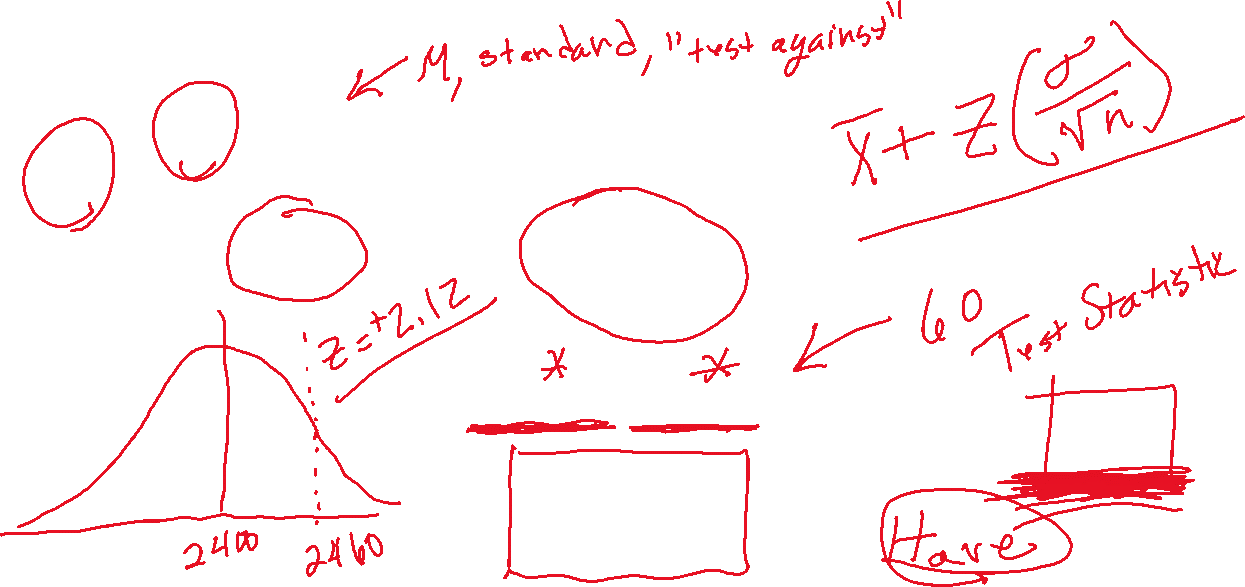 M, standard, "test against"
X̄ + Z(σ/√n)
Z=+2.12
60
Test Statistic
* *
2400 2460
Have